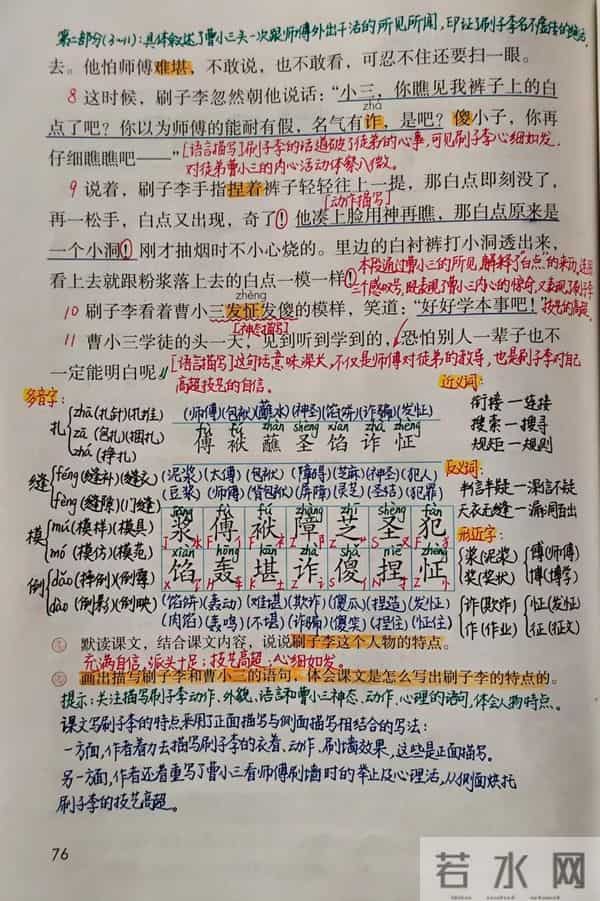 第二部分(3~11):具体叙述了曹小三头一次跟师傅外出干活的所见所闻,印证了刷子李名不虚传的绝活。
去。他怕师傅难堪,不敢说,也不敢看,可忍不住还要扫一眼。
8 这时候,刷子李忽然朝他说话:“小三,你瞧见我裤子上的白
zhà
点了吧?你以为师傅的能耐有假,名气有诈,是吧?傻小子,你再
仔细瞧瞧吧——”[语言描写]刷子李的话道破了徒弟的心事,可见刷子李心细如发,
对徒弟曹小三的内心活动体察入微。
9 说着,刷子李手指捏着裤子轻轻往上一提,那白点即刻没了,
[动作描写]
再一松手,白点又出现,奇了!他凑上脸用神再瞧,那白点原来是
一个小洞!刚才抽烟时不小心烧的。里边的白衬裤打小洞透出来,
本段通过曹小三的所见,解释了“白点”的来历,连用
看上去就跟粉浆落上去的白点一模一样!三个感叹号,既表现了曹小三内心的惊奇,又表现了刷子李
zhèng
10 刷子李看着曹小三发怔发傻的模样,笑道:“好好学本事吧!”技艺的高超。
[神态描写]
11 曹小三学徒的头一天,见到听到学到的,恐怕别人一辈子也不
一定能明白呢。[语言描写]这句话意味深长,不仅是师傅对徒弟的教导,也是刷子李对自己
高超技艺的自信。
多音字:
扎 zhā(扎针)(扎推)
zā(包扎)(捆扎)
zhá(挣扎)
(师傅)(包袱)(蘸水)(神圣)(馅饼)(诈骗)(发怔)
fu fu zhàn shèng xiàn zhà zhèng
傅 袱 蘸 圣 馅 诈 怔
近义词:
衔接—连接
搜索—搜寻
规矩—规则
缝 féng(缝补)(缝衣)
fèng(缝隙)(门缝)
模 mú(模样)(模具)
mó(模仿)(模范)
倒 dǎo(摔倒)(倒霉)
dào(倒影)(倒映)
(泥浆)(太傅)(包袱)(障碍)(芝麻)(神圣)(犯人)
(豆浆)(师傅)(背包袱)(屏障)(灵芝)(圣洁)(犯罪)
jiāng fù fú zhàng zhī shèng fàn
浆 傅 袱 障 芝 圣 犯
xiàn hōng kān zhà shǎ niē zhèng
馅 轰 堪 诈 傻 捏 怔
(馅饼)(轰动)(难堪)(欺诈)(傻瓜)(捏造)(发怔)
(肉馅)(轰鸣)(不堪)(诈骗)(傻笑)(捏住)(怔住)
反义词:
半信半疑—深信不疑
天衣无缝—漏洞百出
形近字:
浆(泥浆) 傅(师傅)
奖(奖状) 博(博学)
诈(欺诈) 怔(发怔)
作(作业) 征(征文)
默读课文,结合课文内容,说说刷子李这个人物的特点。
充满自信,派头十足;技艺高超、心细如发。
画出描写刷子李和曹小三的语句,体会课文是怎么写出刷子李的特点的。
提示:关注描写刷子李动作、外貌、语言和曹小三神态、动作、心理的语句,体会人物特点。
课文写刷子李的特点采用了正面描写与侧面描写相结合的写法:
一方面,作者着力去描写刷子李的衣着、动作、刷墙效果,这些是正面描写。
另一方面,作者还着重写了曹小三看师傅刷墙时的举止及心理活动,从侧面烘托
刷子李的技艺高超。
76
若水网